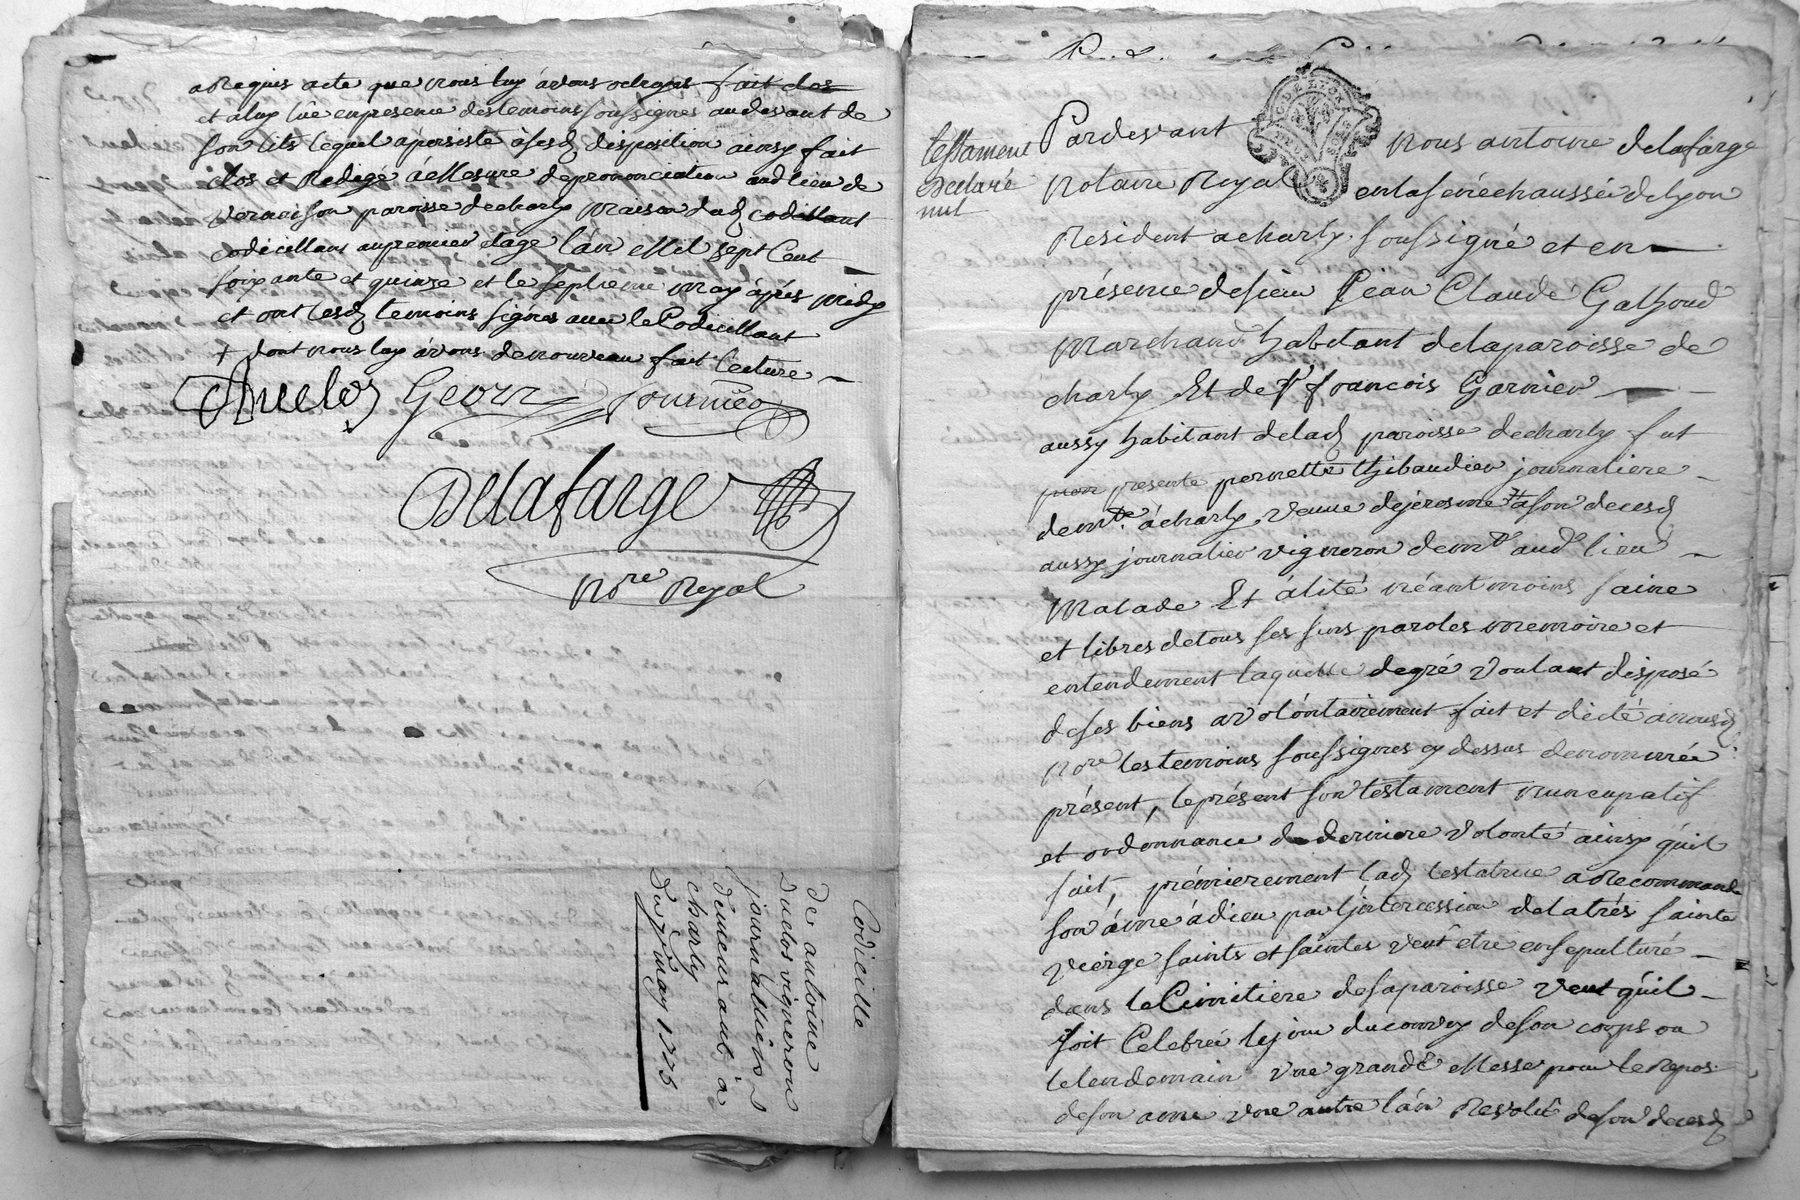 a Requis acte que nous luy avons octroyés fait clos
et a luy lûe en presence des temoins soussignes au devant de
son lits lequel a persisté a sesd disposition ainsy fait
clos et Redigé a Mesure de prononciation aud lieu de
paroisse de charly maison dud codicillant
codicillant au premier étage l'an Mil sept Cent
soixante et quinze et le septieme may après midy
et ont lesd temoins signes avec le Codicillant
+ dont nous luy avons de nouveau fait lecture
Duclos Geory fournier
Delafarge
No.re Royal
Codicille
de antoine
duclos vigneron
journallier
demeurant à
charly
Du 7 may 1775
testament
declaré
nul
Pardevant nous antoine delafarge
Notaire Royal en la sénéchaussée de lyon
Résident a charly soussigné et en
présence de sieur Jéan Claude
marchand habitant de la paroisse de
charly Et de sr françois Garnier
aussy habitant de lad paroisse de charly fut
presente pernette thibaudier journaliere
demte. à charly veuve de jérosme a son decesd
aussy journalier vigneron demt aud lieu
Malade Et alité néant moins saine
et libres de tous ses sens paroles memoire et
entendement laquelle de gré voulant disposé
de ses biens a volontairement fait et dicté a nousd
nore les temoins soussignes cy dessus denommée
présent, le présent son testament nuncupatif
et ordonnance de derniere volonté ainsy quil
sait, prémierement lad testatrice a Recommandé
son âme à dieu par l'intercession de la très sainte
vierge saints et saintes veut être ensepulturé
dans le Cimitiere de sa paroisse veut quil
soit Celebrée le jour du convoy de son corps ou
le lendemain une grande Messe pour le Repos
de son ame une autre l'an Révolû de son decesd